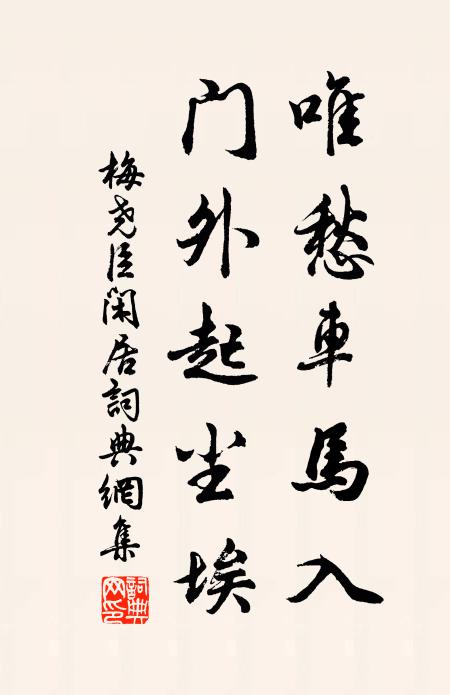 唯愁車馬入
门外起尘埃
梅尧臣闲居詞典網集
詞典网印